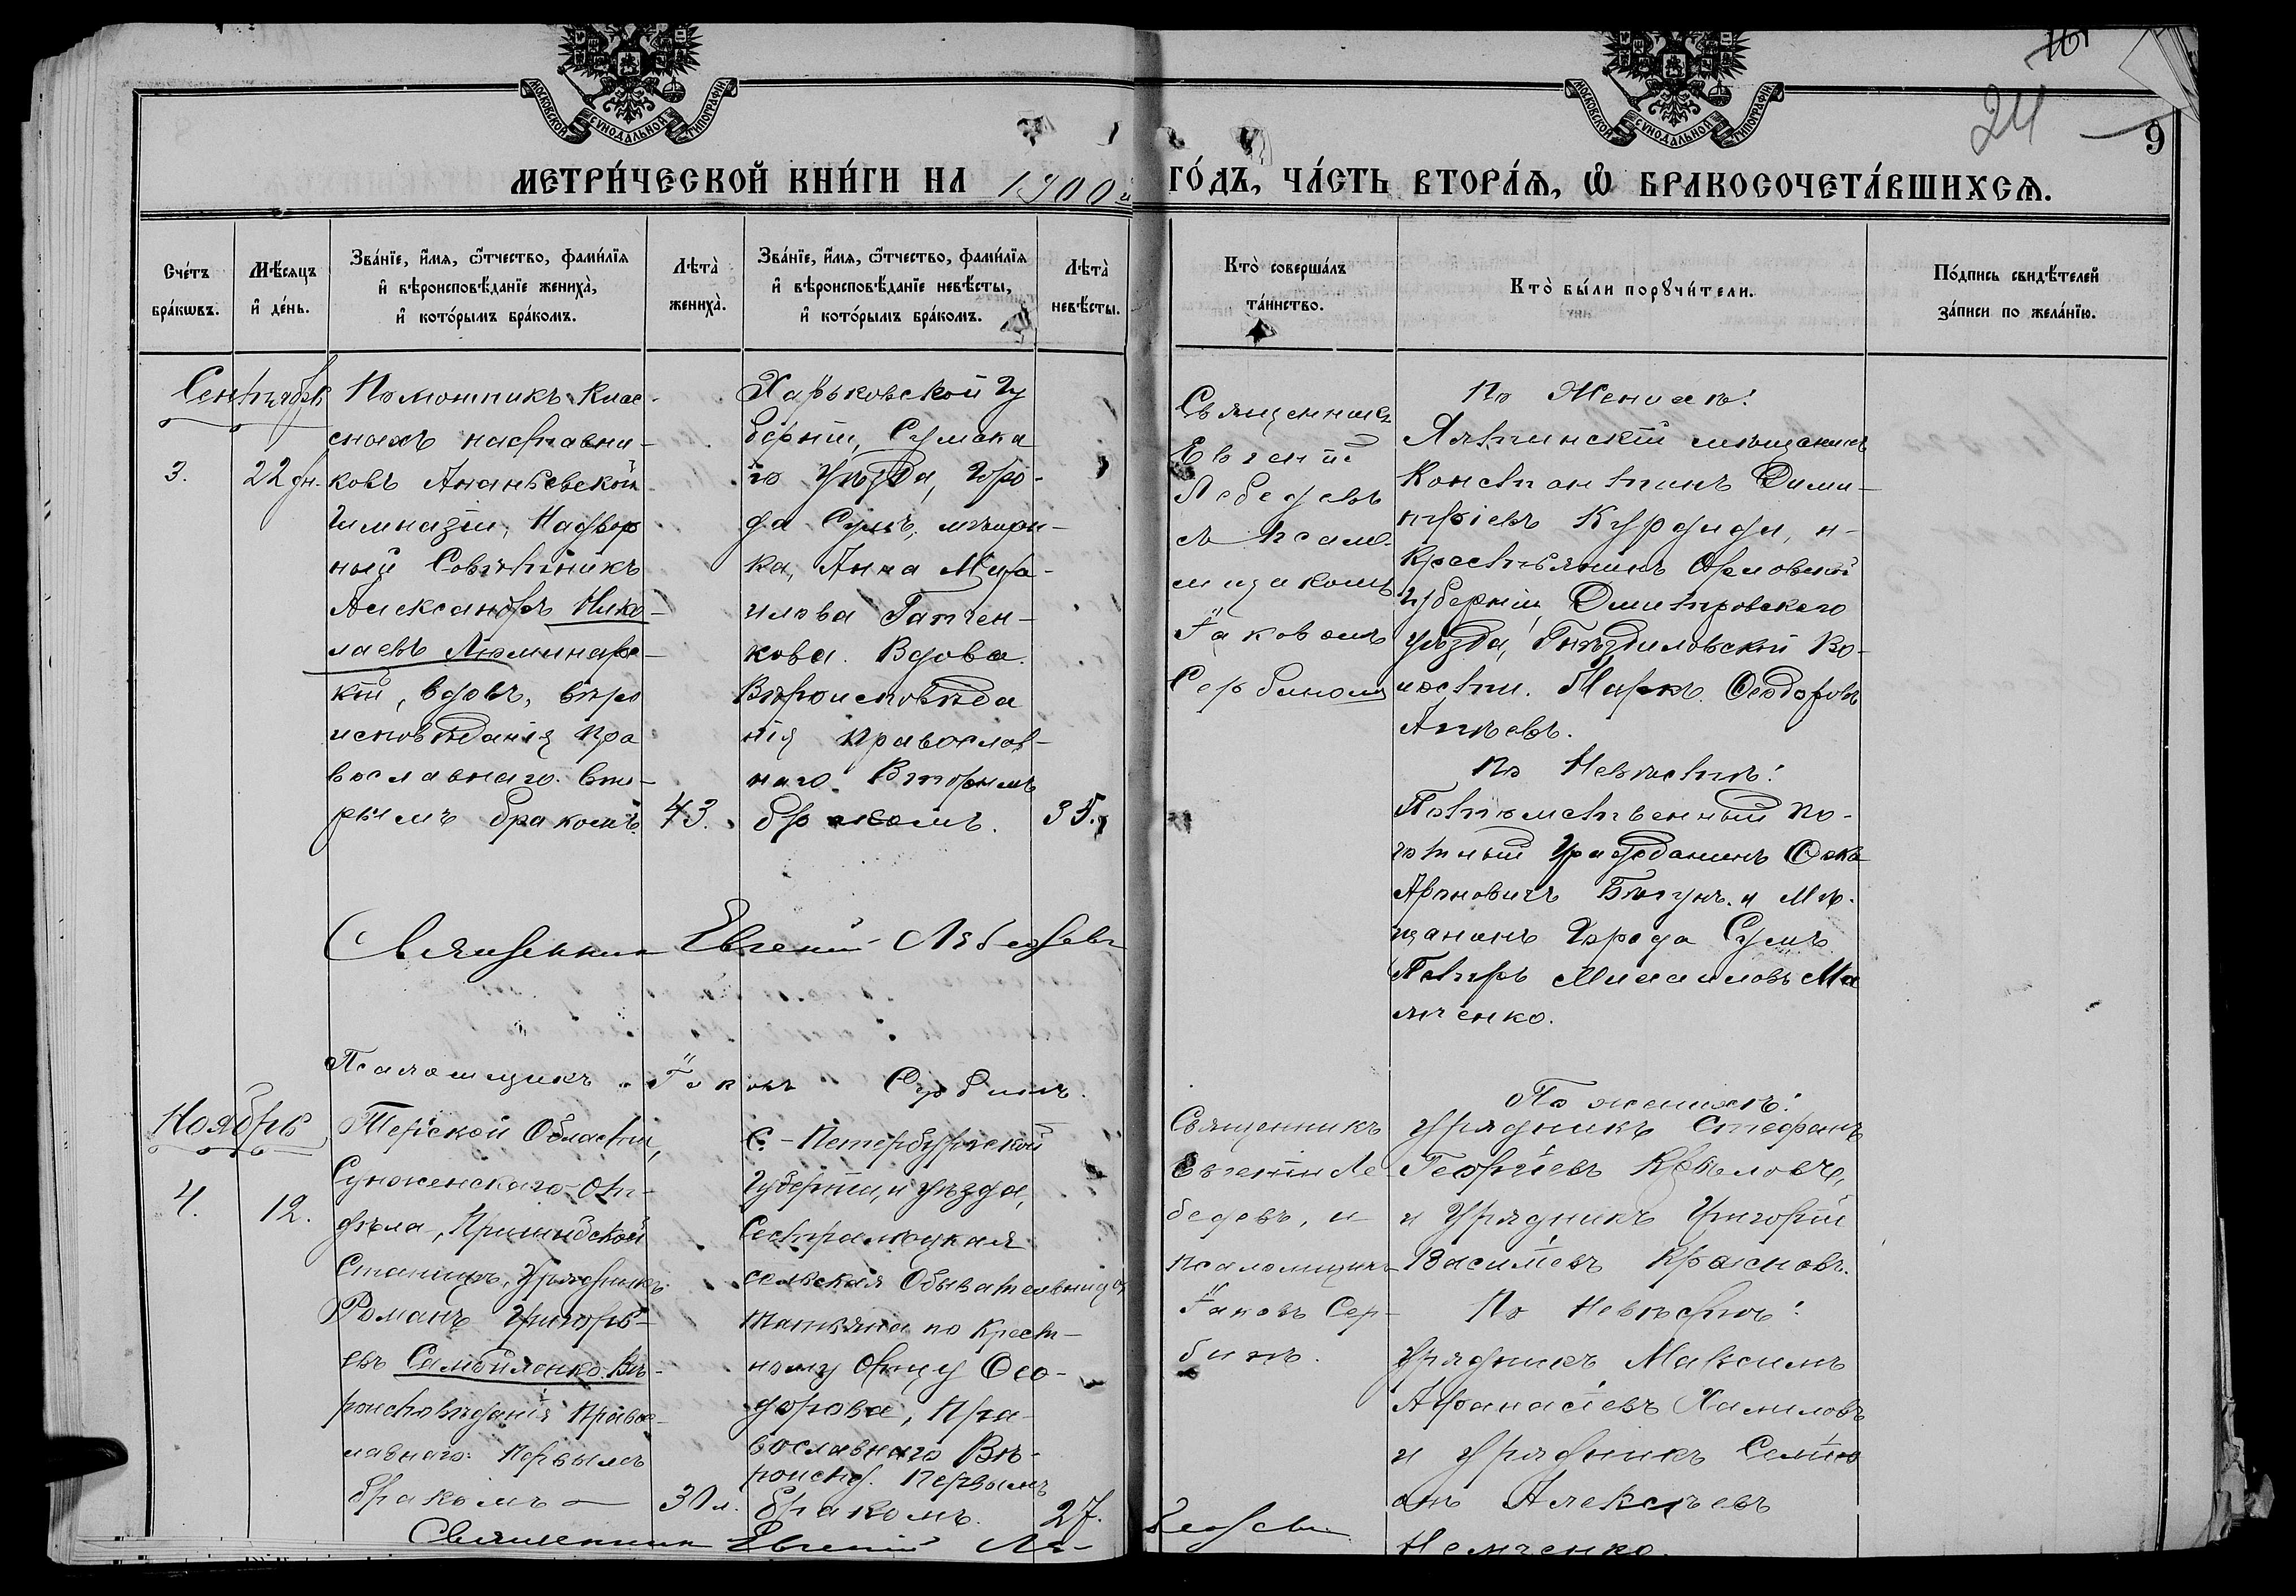 МОСКОВСКОЙ СУНОДАЛЬНОЙ ТИПОГРАФІИ
МОСКОВСКОЙ СУНОДАЛЬНОЙ ТИПОГРАФІИ
24
9
МЕТРИ́ЧЕСКОЙ КНИ́ГИ НА 1900й
ГО́ДЪ, ЧА́СТЬ ВТОРА́Ѧ, Ѽ БРАКОСОЧЕТА́ВШИХСѦ.
Сче́тъ
бра́кѡвъ.
Мѣ́сяцъ
и҆ де́нь.
Зва́нїе, и҆́мѧ, ѻ҆́тчество, фами́лїѧ
и҆ вѣроисповѣ́данїе жениха̀,
и҆ кото́рымъ бра́комъ.
Лѣта̀
жениха̀.
Зва́нїе, и҆́мѧ, ѻ҆́тчество, фами́лїѧ
и҆ вѣроисповѣ́данїе невѣ́сты,
и҆ кото́рымъ бра́комъ.
Лѣта̀
невѣ́сты.
Кто̀ соверша́лъ
та́инство.
Кто̀ бы́ли порꙋчи́тели.
По́дпись свидѣ́телей
за́писи по жела́нїю.
Сентябрь
3.
22 дн.
Помощникъ клас-
сныхъ наставни-
ковъ Ананьевской
Гимназіи, Надвор
ный Совѣтникъ
Александръ Нико-
лаевъ Люминарс-
кій, вдовъ, вѣро
исповѣданія пра
вославнаго. Вто-
рымъ бракомъ.
43.
Харьковской Гу
берніи, Сумска
го уѣзда, горо-
да Сумъ, мѣщан-
ка, Анна Миха-
илова Гапчен-
кова. Вдова.
Вѣроисповѣда
нія православ-
наго. Вторымъ
бракомъ.
35.
Священникъ
Евгеній
Лебедевъ
съ псало-
мщикомъ
Іаковомъ
Сербиномъ
По Женихѣ:
Ялтинскій мѣщанинъ
Константинъ Дими-
тріевъ Курдиди, и-
крестьянинъ Орловской
губерніи, Дмитровскаго
уѣзда, Гнѣздиловской Во-
лости. Маркъ Ѳеодоровъ
По Невѣстѣ:
Потомственный По-
четный Гражданинъ
и Мѣ-
щанинъ города Сумъ
Петръ Михаиловъ
Священникъ Евгеній Лебедевъ
Псаломщикъ Іаковъ Сербинъ.
Ноябрь
4.
12.
Терской Области,
Сунженскаго От-
дѣла, Пришибской
Станицы, Урядникъ
Романъ Григорь-
евъ Самойленко. Вѣ-
роисповѣданія Правос-
лавнаго. Первымъ
бракомъ
30 л.
С.-Петербургской
Губерніи, и уѣзда,
Сестрорѣцкая
сельская Обывательница
Татьяна по Крест-
ному Отцу Ѳео-
дорова, Пра-
вославнаго Вѣ-
роиспов. Первымъ
бракомъ.
27.
Священникъ
Евгеній Ле-
бедевъ, и
псаломщикъ
Іаковъ Сер-
бинъ.
По женихѣ:
Урядникъ Стефанъ
Георгіевъ
и Урядникъ Григорій
Василіевъ Красновъ.
По Невѣстѣ:
Урядникъ Максимъ
Афанасіевъ
и Урядникъ Сѵмео
онъ Алексѣевъ
Немченко.
Священникъ Евгеній Лебедевъ